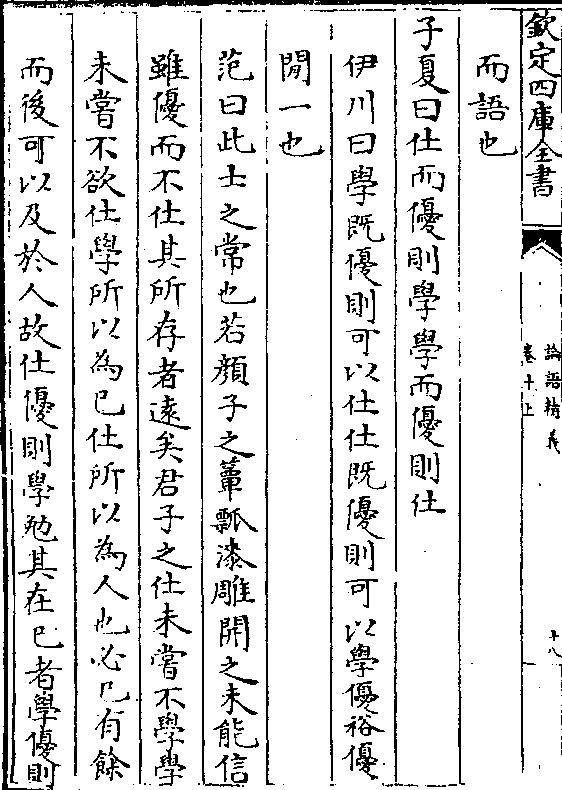 欽定四庫全書
論語精義
卷十上
十八
而語也
子夏曰仕而優則學學而優則仕
伊川曰學既優則可以仕仕既優則可以學優裕優
閒一也
范曰此士之常也若顔子之簞瓢漆雕開之未能信
雖優而不仕其所存者逺矣君子之仕未嘗不學學
未嘗不欲仕學所以為已仕所以為人也必已有餘
而後可以及於人故仕優則學勉其在已者學優則